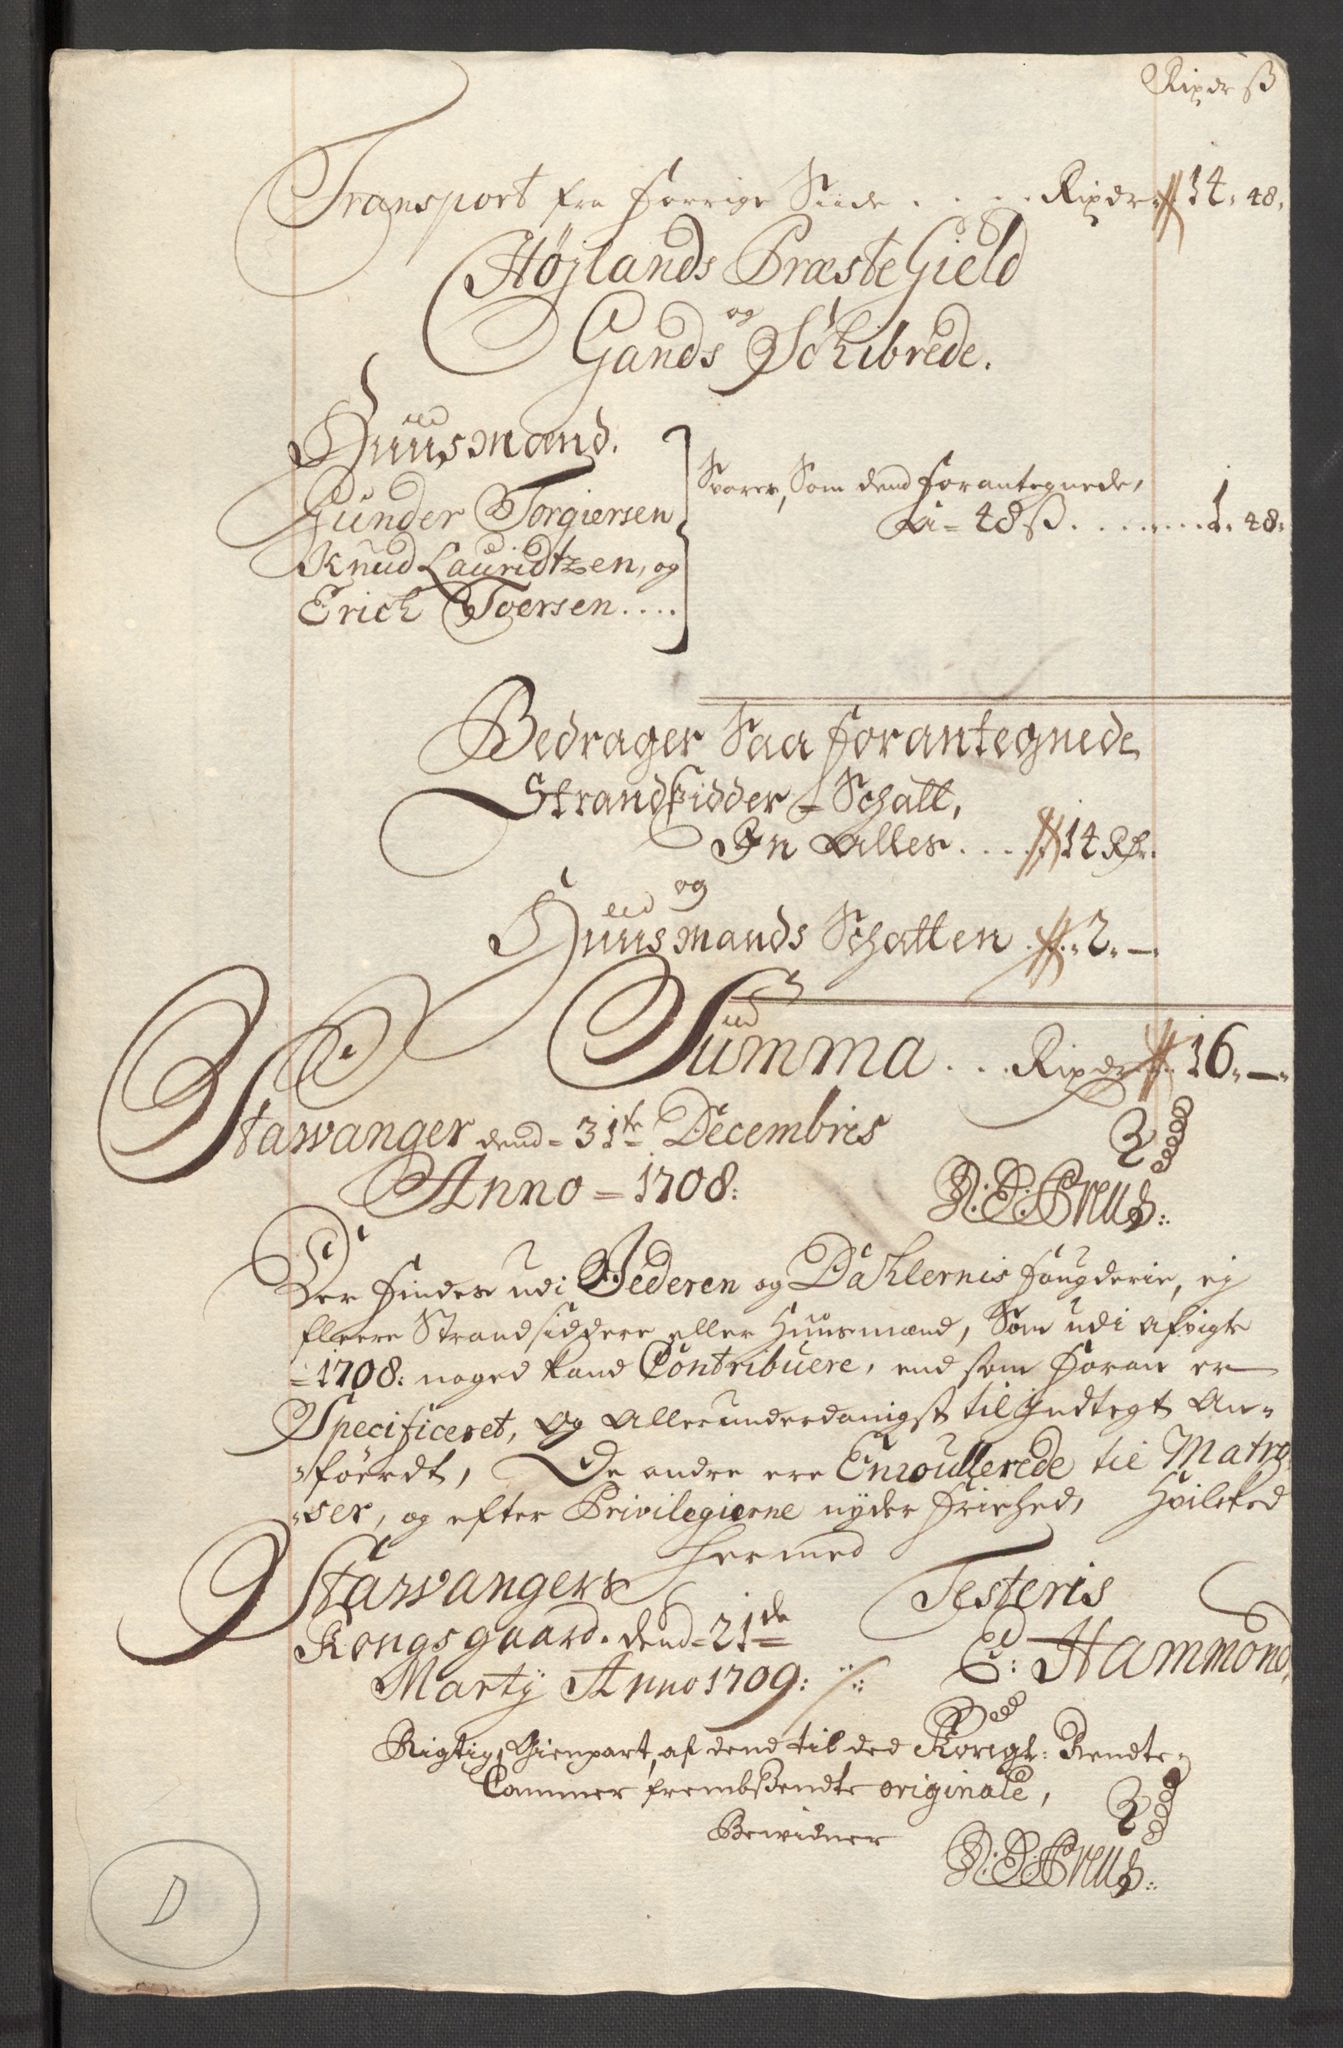 Rixdr ß
Transport fra forrige Siide . . . . Rixdr 14. 48.
Højlands PræsteGield
og
Gands Schibrede.
Huusmænd.
Gunder Torgiersen
Knud Lauridtzen, og
Erich Toersen....
Svarer, Som dend forantegnede,
a = 48 ß. . . . . . . . 1. 48.
Bedrager Saa forantegnede
Strandsidder = Schatt,
In Alles. . . . 14 Rdr.
og
Huusmands Schatten . . 2. —
Summa . . . Rixdr 16. —
Stawanger dend = 31te Decembris
Anno = 1708:
Der findes udi Jederen og Dahlernis fougderie, ej
fleere Strandsiddere eller Huusmænd, Som udi afvigte
= 1708: noged kand Contribuere, end som foran er
Specificeret, og Allerunderdanigst til Indtegt An=
=föerdt, De andre ere Enroullerede til Matro
=ser, og efter Privilegierne nyder friehed, Hvilked
hermed
Stawangers Testeris
Kongsgaard. dend = 21de
Marty Anno 1709: E: Hammond.
Rigtig Gienpart, af dend til ded Kongl: Rendte=
Cammer frembsendte originale,
Bewidner
D